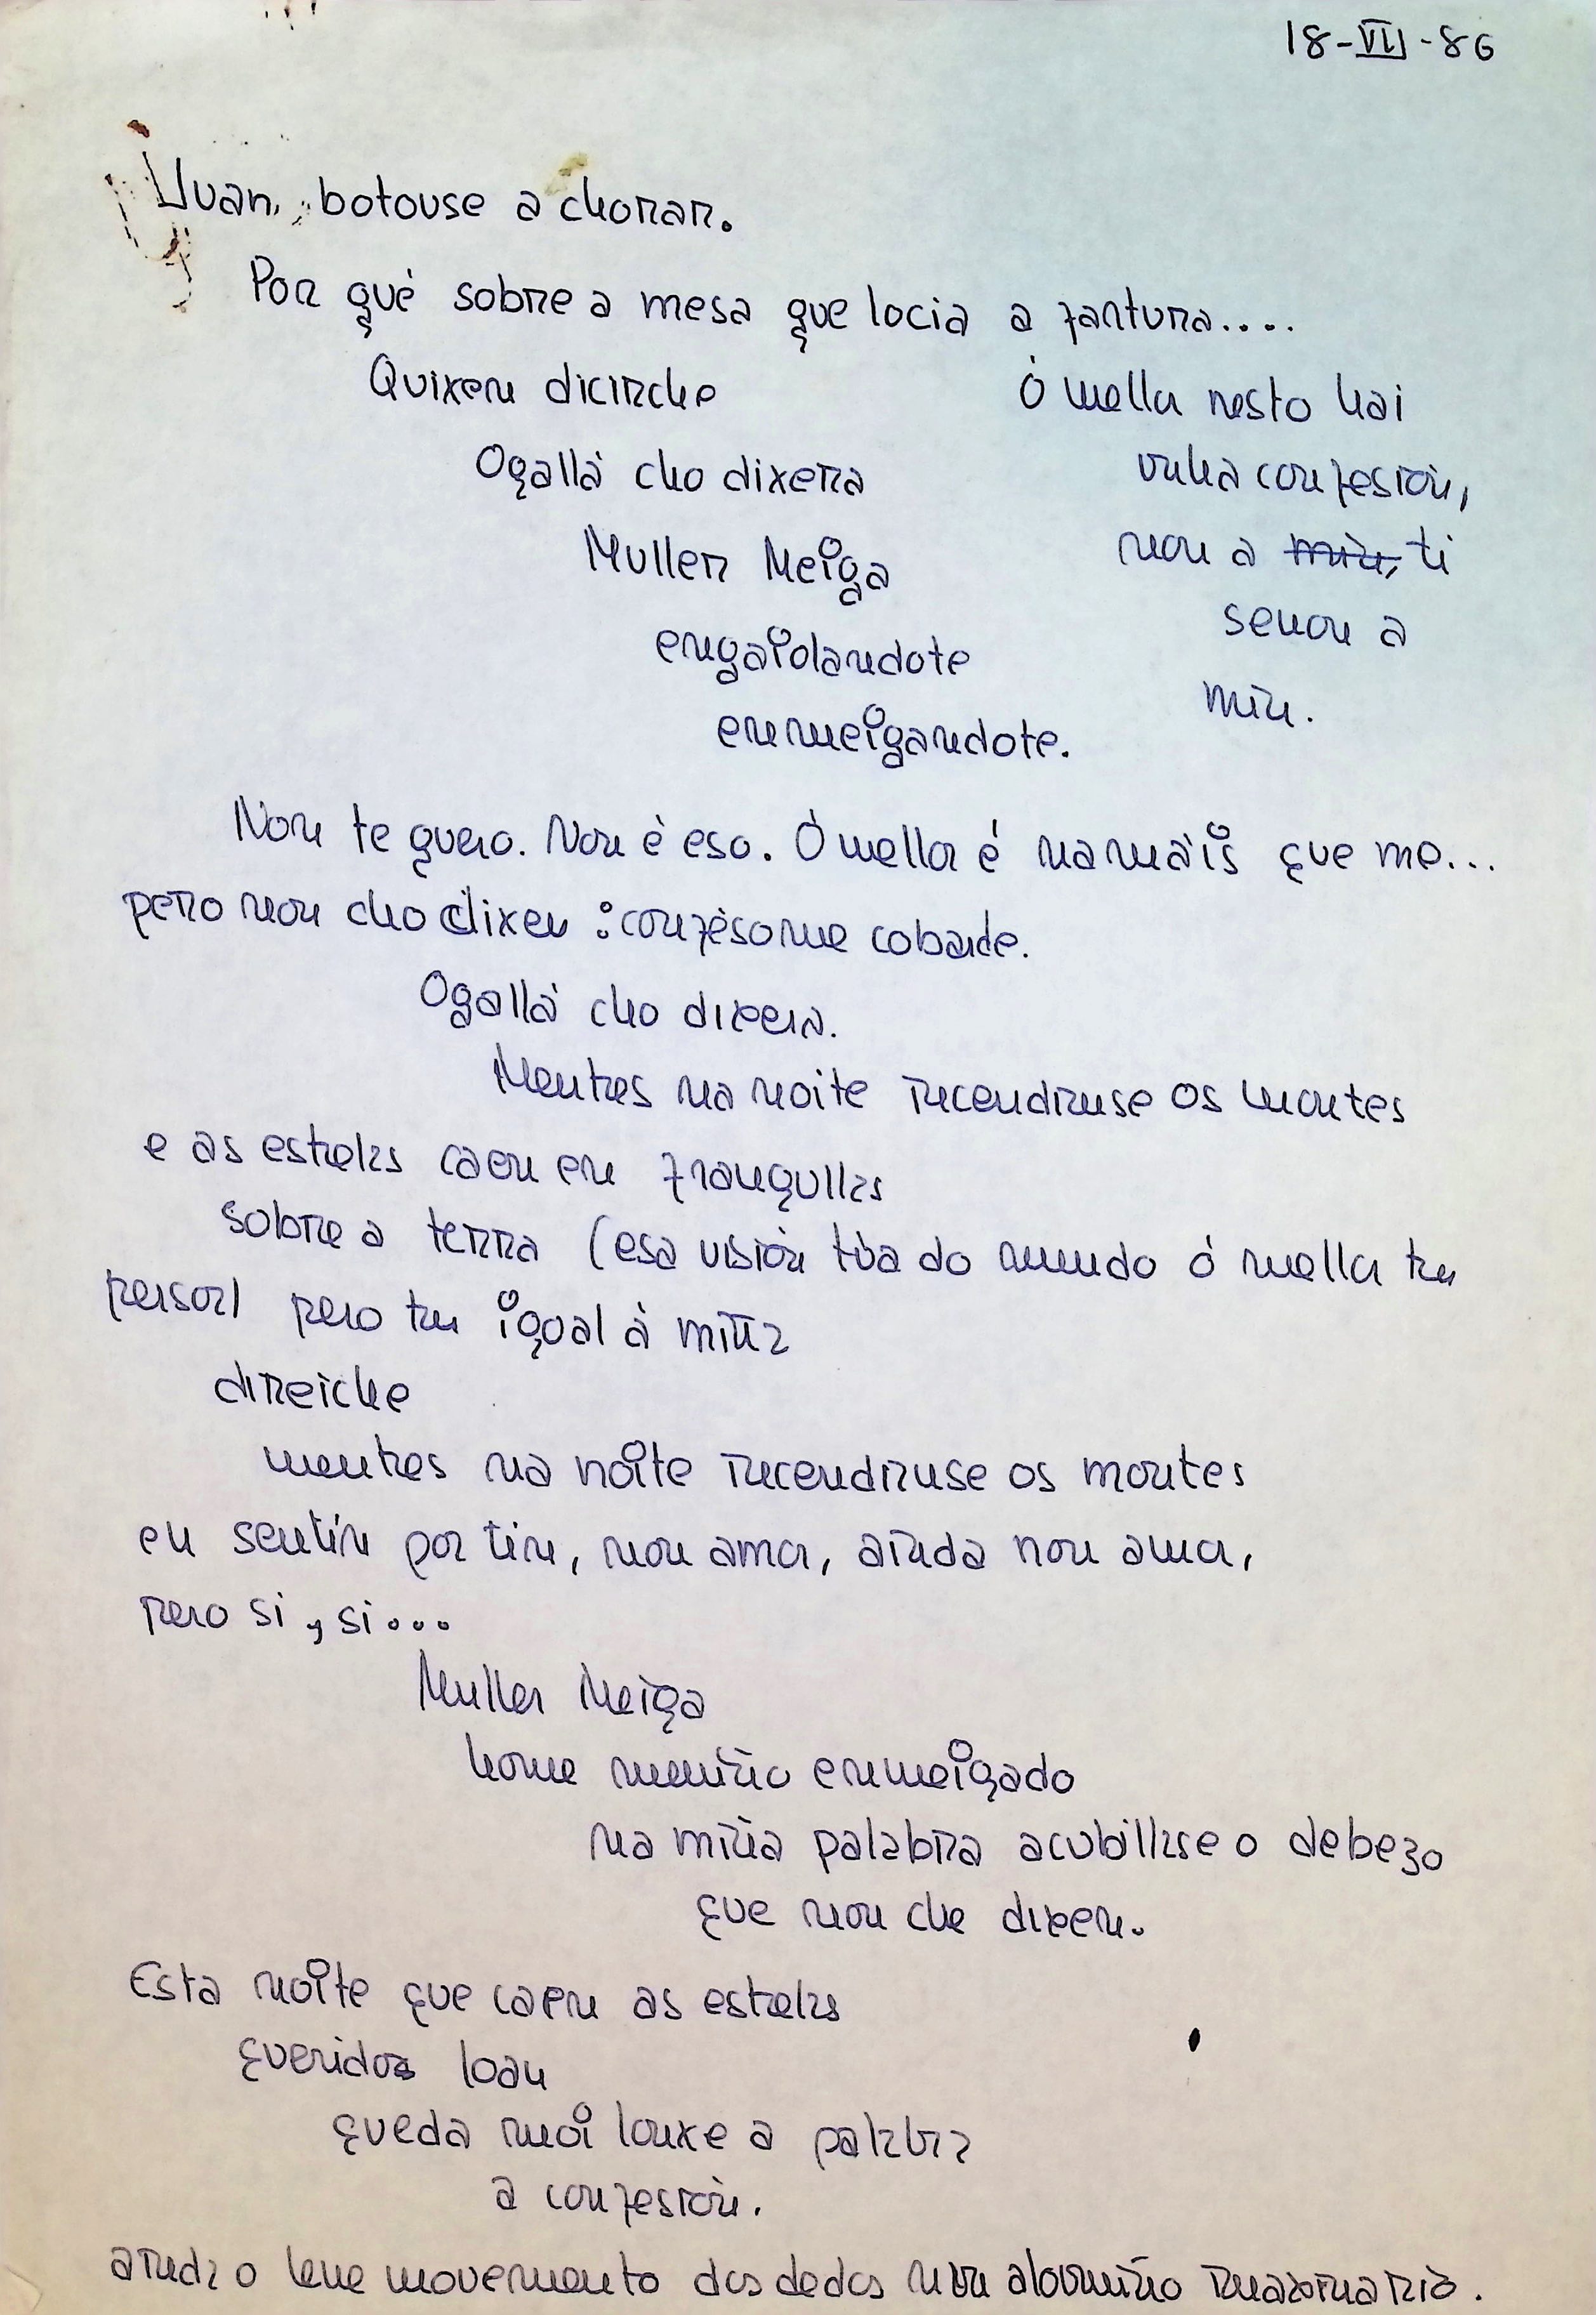 18-VII-86
Juan, botouse a chorar.
Por qué sobre a mesa que locia a fartura....
Quixen dicirche
Ogallá cho dixera
Muller Meiga
engaiolandote
enmeigandote.
Ó mellor nesto hai
unha confesión,
non a min, ti
senon a
min.
Non te quero. Non é eso. Ó mellor é namáis que me...
pero non cho dixen : confésome cobarde.
Ogallá cho dixera.
Mentres na noite incendianse os montes
e as estrelas caen en
sobre a terra (esa visión túa do mundo ó mellor ten
persoal pero ten igoal á miña
direiche
mentres na noite incendianse os montes
eu sentín por tin, non amor, ainda non amor,
pero si, si...
Muller Meiga
home meniño enmeigado
na miña palabra acubillase o debezo
que non che dixen.
Esta noite que caen as estrelas
querido Ioan
queda moi lonxe a palabra
a confesión.
ainda o leve movemento dos dedos nun alouminho imaxinario.